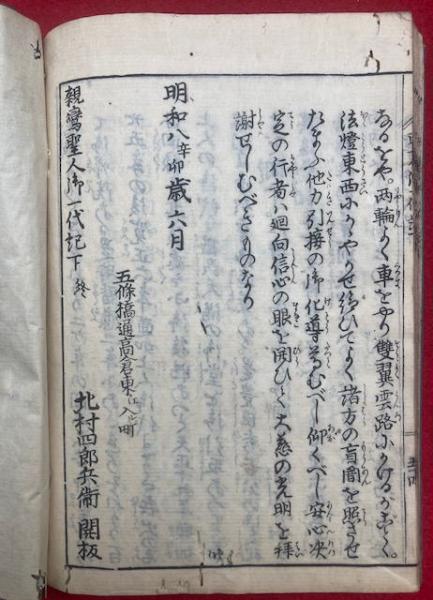 なるをや。両輪よく車をやり雙翼雲路にかけるがごとく。
法燈東西にかゝやかせ給ひてよく諸方の盲闇を照させ
たまふ他力引接の御化導尊むべし仰くべし安心决
定の行者ハ迴向信心の眼を開ひて大慈の光明を拝
謝せしむべきものなり
明和八辛卯歳六月
五條橋通高倉東江入ル町
北村四郎兵衛 開板
親鸞聖人御一代記下 終